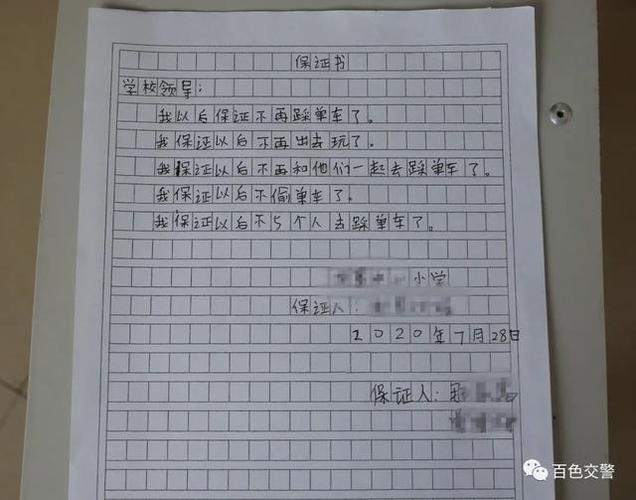 保证书
学校领导：
我以后保证不再踩单车了。
我保证以后不再出去玩了。
我保证以后不再和他们一起去踩单车了。
我保证以后不偷单车了。
我保证以后不5个人去踩单车了。
小学
保证人：
2020年7月28日
保证人：
百色交警